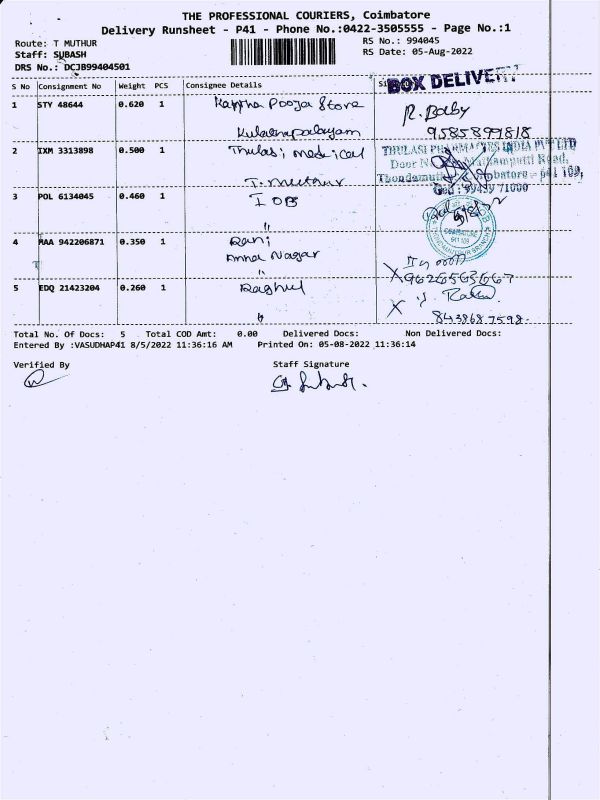 THE PROFESSIONAL COURIERS, Coimbatore
Delivery Runsheet - P41 - Phone No.:0422-3505555 - Page No.:1
Route: T MUTHUR
RS No.: 994045
Staff: SUBASH
RS Date: 05-Aug-2022
DRS No.: DCJB99404501
BOX DELIVERY
S No Consignment No Weight PCS Consignee Details
1 STY 48644 0.620 1 Pooja Store
R. Baby
Kulathupalayam 9585899818
2 IXM 3313898 0.500 1 Thulasi medical
THULASI PHARMACIES INDIA PVT LTD
T. muthur
99499 71000
3 POL 6134045 0.460 1 IOB
"
COIMBATORE
4 MAA 942206871 0.350 1 Rani
Anna Nagar
" X 9626563667
5 EDQ 21423204 0.260 1 Raghul
" X 8438687598
Total No. Of Docs: 5 Total COD Amt: 0.00 Delivered Docs: Non Delivered Docs:
Entered By :VASUDHAP41 8/5/2022 11:36:16 AM Printed On: 05-08-2022 11:36:14
Verified By Staff Signature